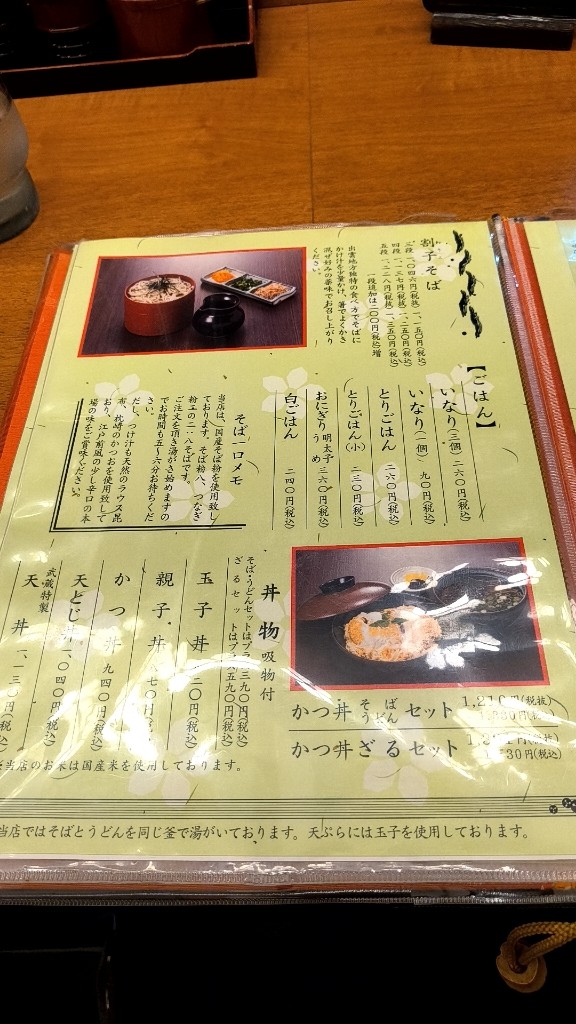 割子そば
三段 一、〇四六円(税抜) 一、一五〇円(税込)
四段 一、一三七円(税抜) 一、二五〇円(税込)
五段 一、二二八円(税抜) 一、三五〇円(税込)
一段追加は二〇〇円(税込)増
出雲地方独特の食べ方でそばに
かけ汁を少量かけ、箸でよくかき
混ぜ好みの薬味でお召し上がり
ください。
【ごはん】
いなり(三個) 二六〇円(税込)
いなり(一個) 九〇円(税込)
とりごはん 二六〇円(税込)
とりごはん(小) 二三〇円(税込)
おにぎり 明太子 うめ 三六〇円(税込)
白ごはん 二四〇円(税込)
そば一口メモ
当店は、国産そば粉を使用致し
ております。そば粉八、つなぎ
粉二の二・八そばです。
ご注文を頂き湯がき始めますの
でお時間も五〜六分お待ちくだ
さい。
だし、つけ汁も天然のラウス昆
布、枕崎のかつおを使用致して
おり、江戸前風の少し辛口の本
場の味をご賞味ください。
かつ丼 そば うどん セット
かつ丼ざるセット
丼物 吸物付
そば・うどんセットはプラス三九〇円(税込)
ざるセットはプラス五九〇円(税込)
玉子丼
親子丼
かつ丼 九四〇円(税込)
天とじ丼 一、〇四〇円(税込)
武蔵特製
天丼 一、一三〇円(税込)
当店のお米は国産米を使用しております。
当店ではそばとうどんを同じ釜で湯がいております。天ぷらには玉子を使用しております。